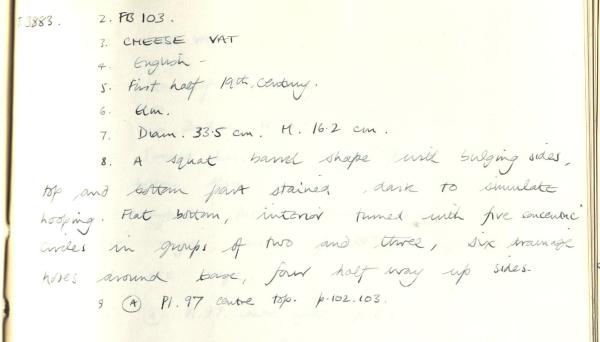 T3883. 2. FB 103.
3. CHEESE VAT
4. English -
5. First half 19th. Century.
6. Elm.
7. Diam. 33.5 cm. H. 16.2 cm.
8. A squat barrel shape with bulging sides,
top and bottom part stained dark to simulate
hooping. Flat bottom, interior turned with five concentric
circles in groups of two and three, six drainage
holes around base, four half way up sides.
9 (A) Pl. 97 centre top. p. 102. 103.